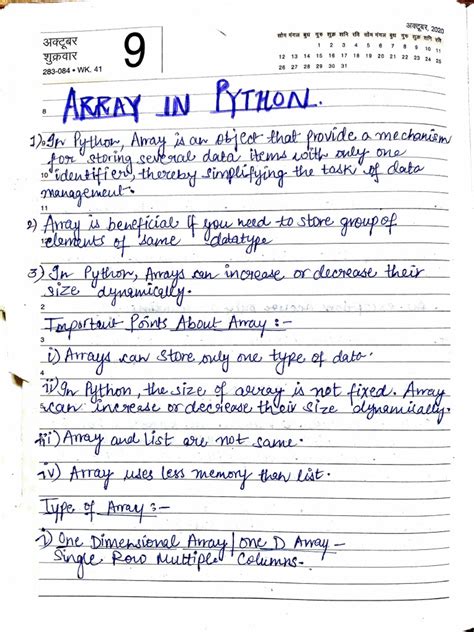 अक्टूबर
शुक्रवार
283-084 • WK. 41
9
अक्टूबर, 2020
सोम मंगल बुध गुरु शुक्र शनि रवि सोम मंगल बुध गुरु शुक्र शनि रवि
1 2 3 4 5 6 7 8 9 10 11
12 13 14 15 16 17 18 19 20 21 22 23 24 25
26 27 28 29 30 31
8 ARRAY IN PYTHON.
1) In Python, Array is an object that provide a mechanism
for storing several data items with only one
10 identifier, thereby simplifying the task of data
management.
11
2) Array is beneficial if you need to store group of
elements of same datatype
3) In Python, Arrays can increase or decrease their
size dynamically.
2
Important Points About Array :-
3
i) Arrays can store only one type of data.
4
ii) In Python, the size of array is not fixed. Array
can increase or decrease their size dynamically.
iii) Array and List are not same.
iv) Array uses less memory then list.
Type of Array :-
1) One Dimensional Array / one D Array —
Single Row Multiple Columns.